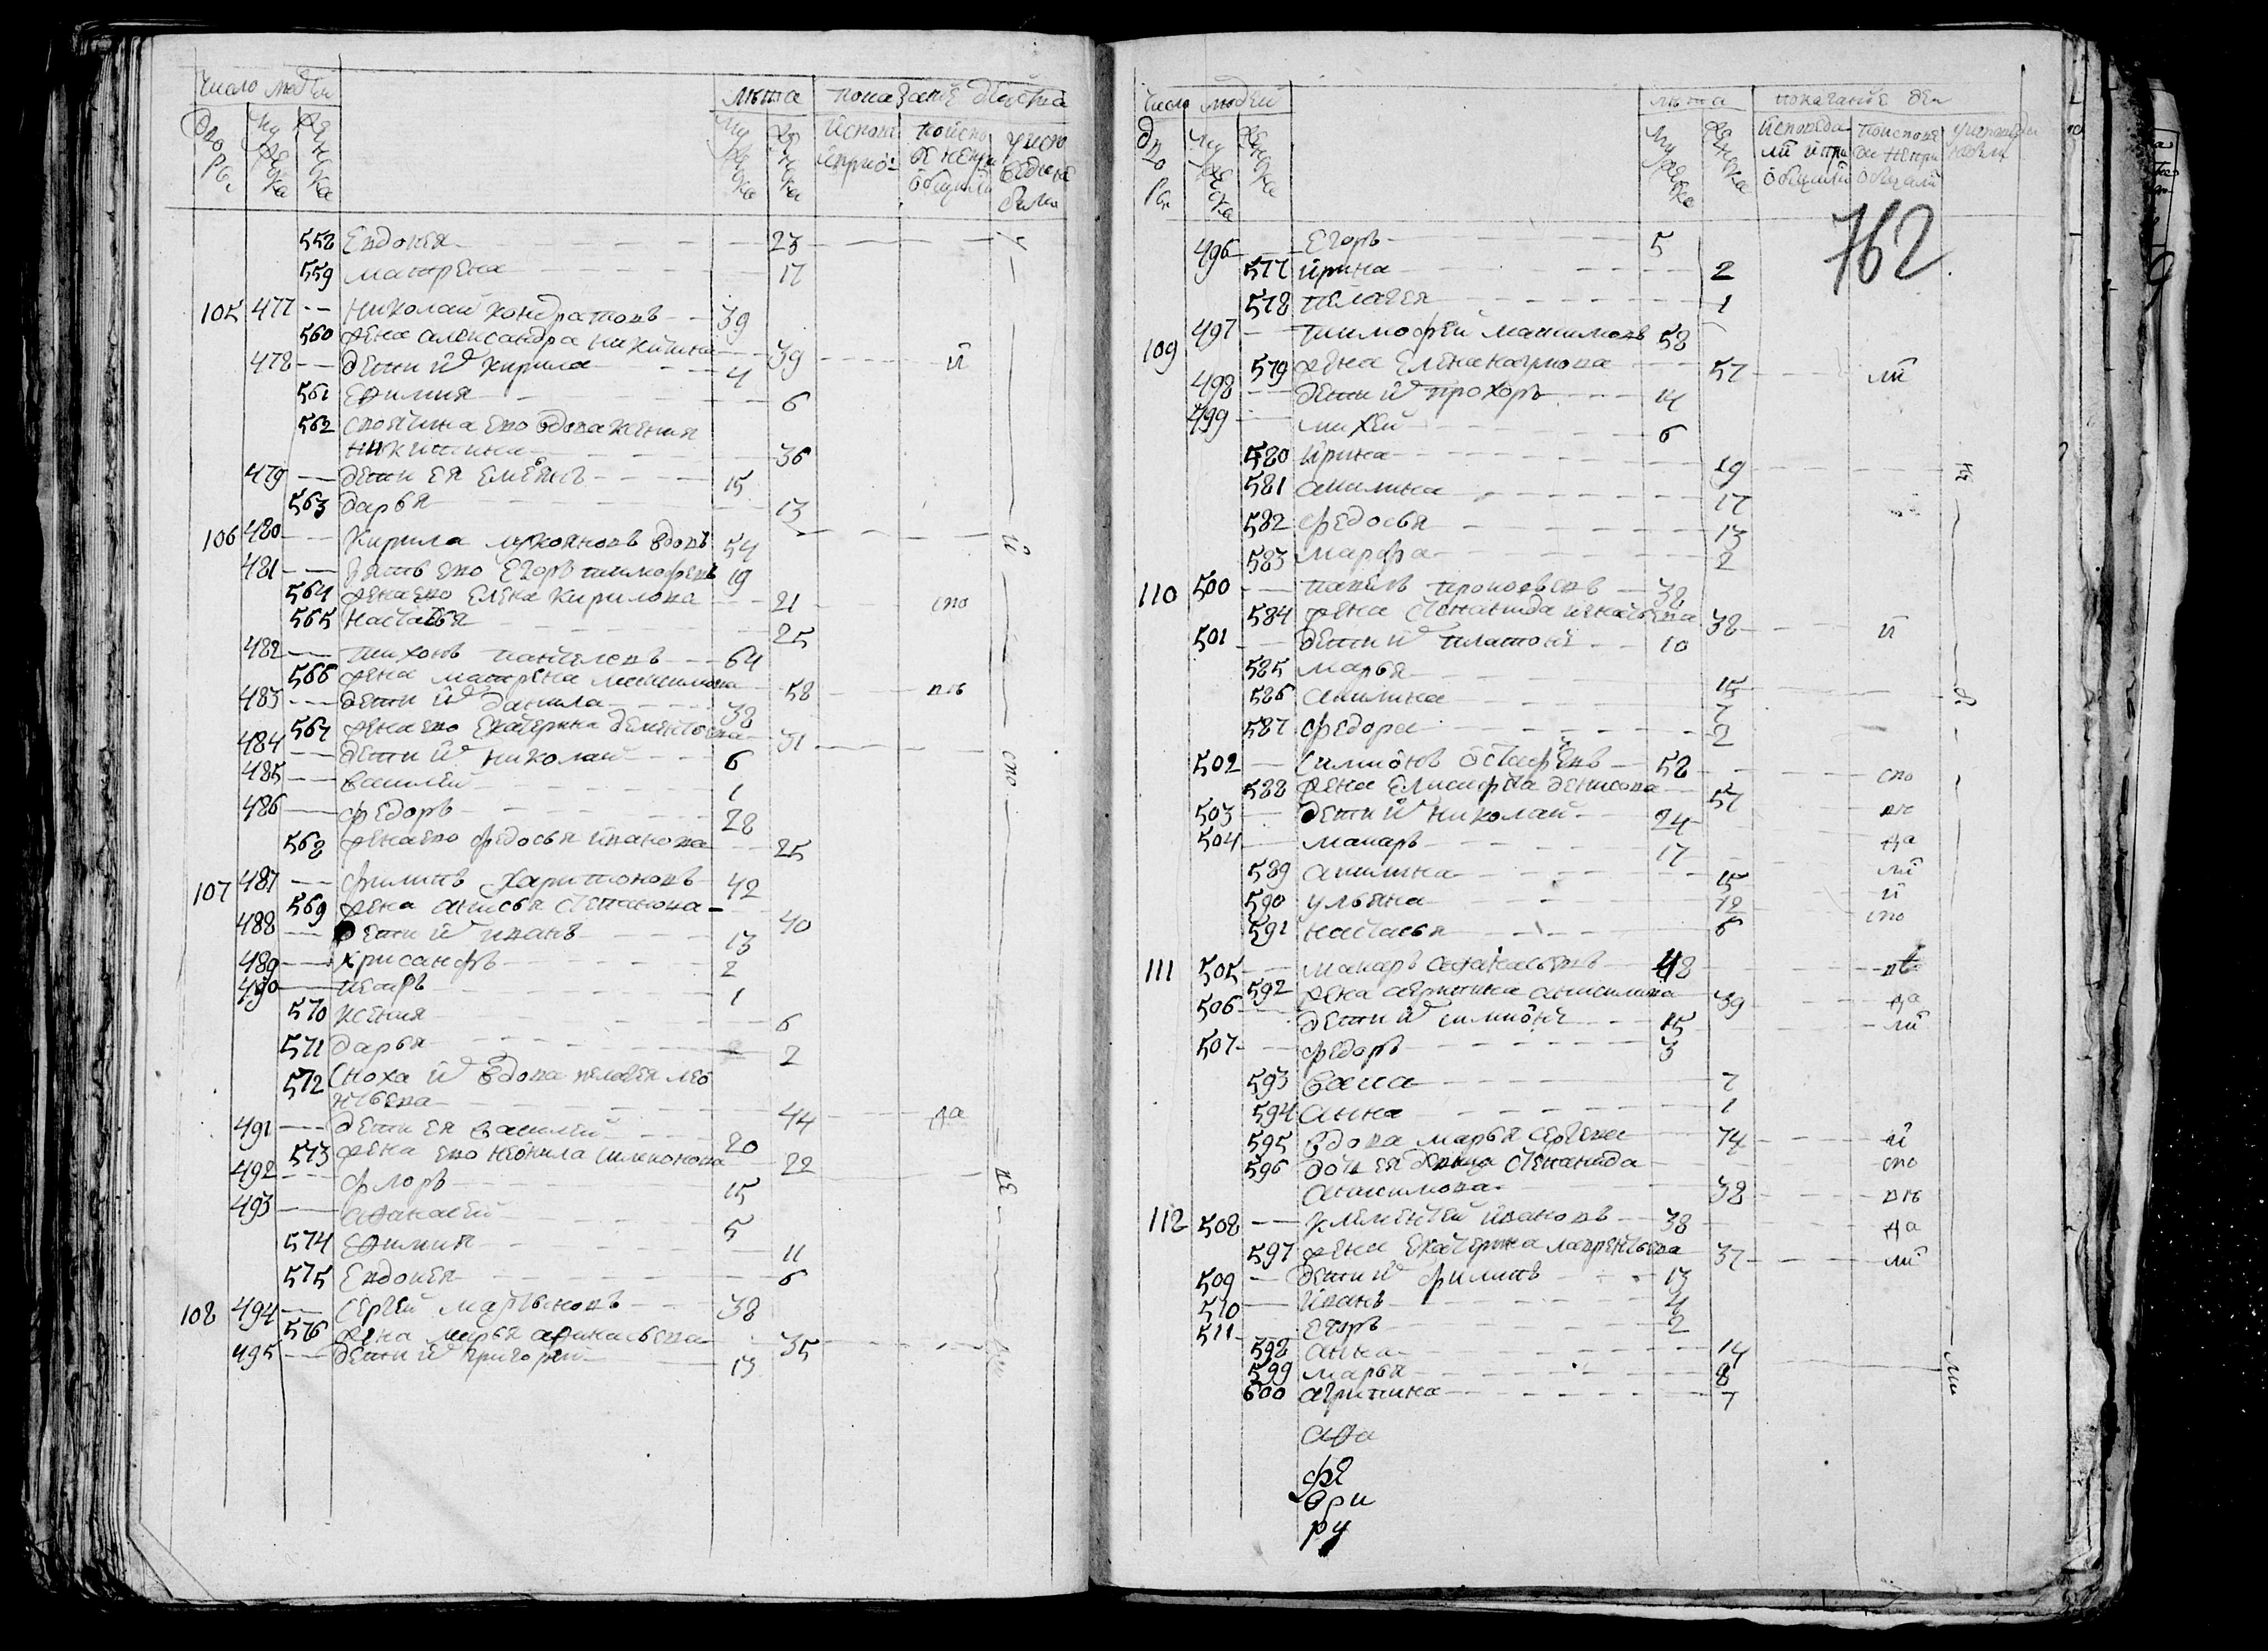 Число людей
лѣта показанїе дѣйства
дворы мужеска женска
мужеска женска испов. и прио. по исповѣ а не при общили у исповеди не были
558 Евдокея 23
559 матрена 17
105 477 Николай кондратовъ 39
560 жена александра никитина 39
478 дети их кирила 4 и
561 Ефимия 6
562 своячина ево вдова ксения
никитина 36
479 дети ея Емельянъ 15
563 дарья 13
106 480 кирила лукояновъ вдовъ 54
481 зять ево Егоръ тимофеевъ 19
564 жена ево Елена кирилова 21 спо
565 настасья 25
482 тихонъ 64
566 жена матрена максимова 58 вѣ
483 дети их данила 38
567 жена ево Екатерина дементьева 31
484 дети их николай 6
485 василей 1
486 федоръ 28
568 жена ево федосья иванова 25
107 487 филипъ харитоновъ 42
569 жена анисья степанова 40
488 дети их иванъ 13
489 хрисанфъ 2
490 петръ 1
570 ксения 6
571 дарья 2
572 сноха их вдова пелагея лео
нтьева 44 да
491 дети ея василей 20
573 жена ево неонила симионова 22
492 флоръ 15
493 афанасей 5
574 Ефимия 11
575 Евдокея 6
108 494 сергей мартыновъ 38
576 жена марья афанасьева 35
495 дети их григорий 13
Число людей
лѣта показание дей
дворы мужеска женска
мужеска женска исповедали и приобщили по исповеди а не приобщали у исповеди не были
762
496 Егоръ 5
577 ирина 2
578 пелагея 1
109 497 тимофей максимовъ 58
579 жена Елена наумова 57 ли
498 дети их прохоръ 14
499 михей 6
580 ирина 19
581 акилина 17
582 федосья 13
583 марфа 2
110 500 павелъ прокофьевъ 38
584 жена степанида игнатьева 38 и
501 дети их платонъ 10
585 марья 15
586 акилина 7
587 федора 2
502 симионъ остафьевъ 58 спо
588 жена Елисафета денисова 57
503 дети их николай 24 вѣ
504 макаръ 17 да
589 акилина 15 ли
590 ульяна 12 и
591 настасья 6 спо
111 505 макаръ афанасьевъ 48 вѣ
592 жена агрипина анисимова 39 да
506 дети их симионъ 15 ли
507 федоръ 3
593 васса 7
594 анна 1
595 вдова марья сергеева 74 и
596 дочь ея девица степанида спо
анисимова 38 вѣ
112 508 клементей ивановъ 38 да
597 жена Екатерина лаврентьева 37 ли
509 дети их филипъ 13
510 иванъ 4
511 Егоръ 2
598 анна 14
599 марья 8
600 агрипина 7
афа
фе
ври
ру